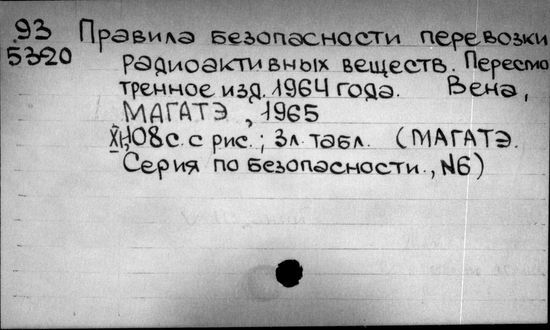 93 Правила безопасности перевозки
5320 радиоактивных веществ. Пересмо
тренное изд. 1964 года. Вена,
МАГАТЭ, 1965
108 с. с рис.; 3 л. табл. (МАГАТЭ.
Серия по безопасности., №6)